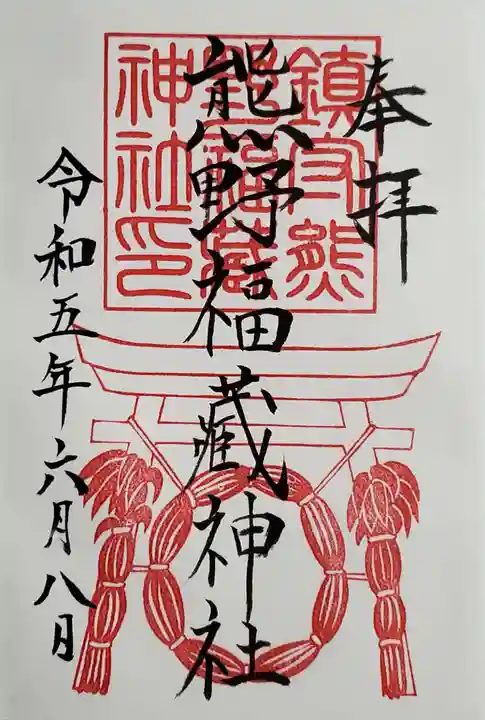 奉拝
熊野福蔵神社
令和五年六月八日
鎮守熊
野福蔵
神社印